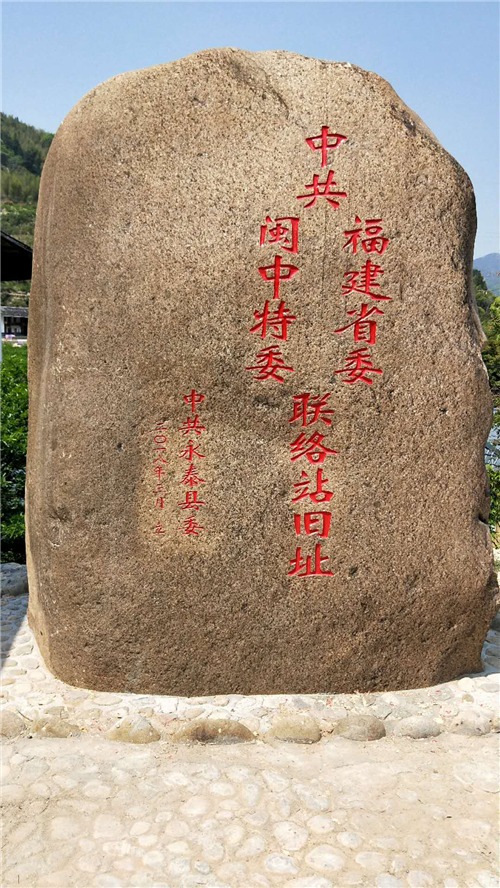 中共
福建省委
闽中特委
联络站旧址
中共永泰县委
二〇一八年 月 立